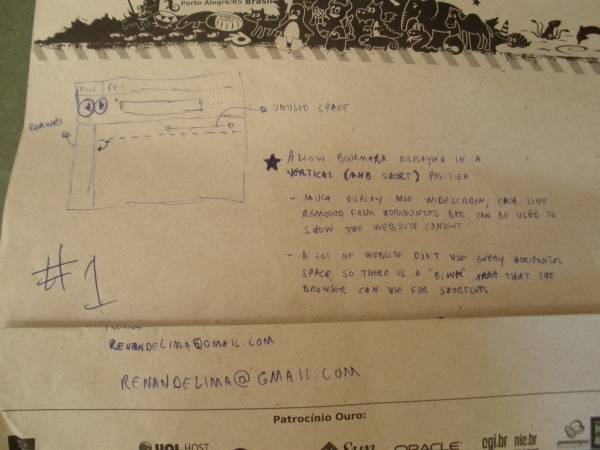 Porto Alegre/RS Brasil
FILE EDIT
UNUSED SPACE
BOOKMARK
★ ALLOW BOOKMARK DISPLAYING IN A
VERTICAL (AND SHORT) POSITION
- MUCH DISPLAY USE WIDESCREEN, EACH LINE
REMOVED FROM HORIZONTAL BAR CAN BE USED TO
SHOW THE WEBSITE CONTENT
- A LOT OF WEBSITE DON'T USE EVERY HORIZONTAL
SPACE, SO THERE IS A "BLANK" AREA THAT THE
BROWSER CAN USE FOR SHORTCUTS
#1
RENANDELIMA@GMAIL.COM
RENANDELIMA@GMAIL.COM
Patrocínio Ouro:
UOL HOST
Sun
ORACLE
cgi.br nic.br